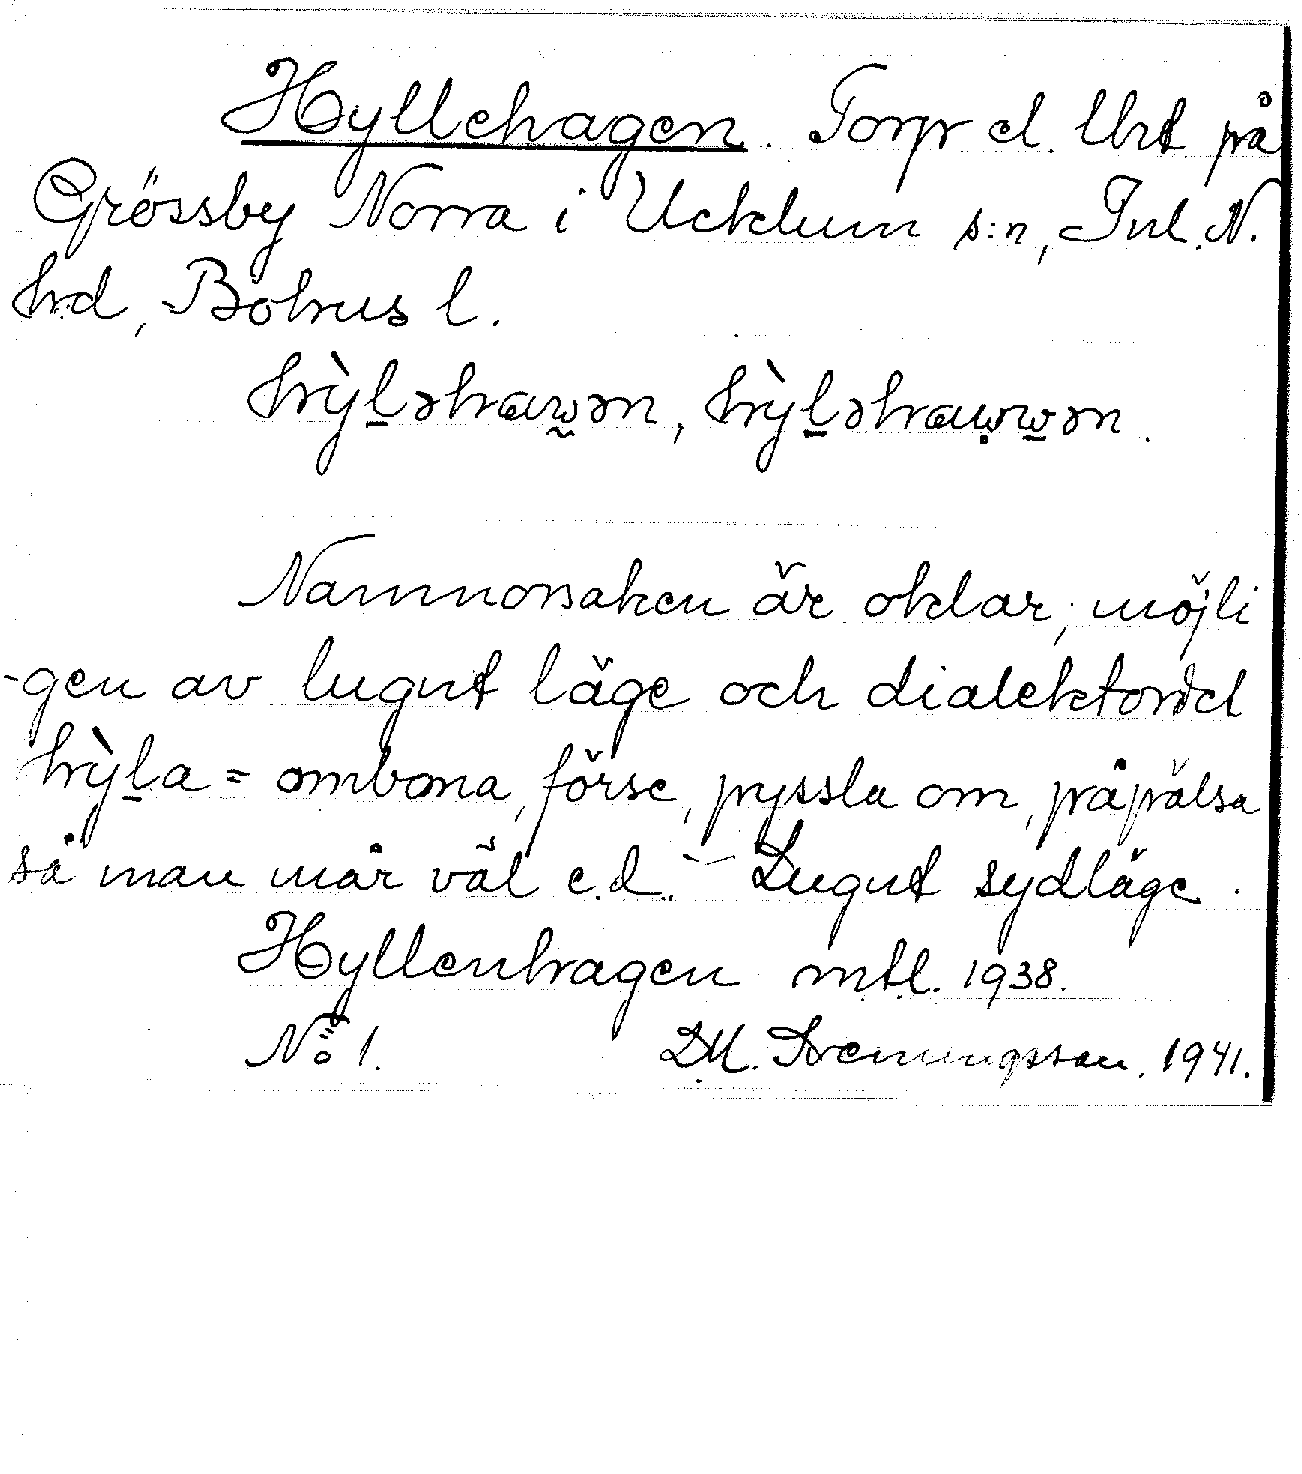 Hyllehagen. Torp el. lht på
Grössby Norra i Ucklum s:n, Inl. N.
hd, Bohus l.
hỳḻəhaw̰ən, hỳḻəhaẉw̱ən.
Namnorsaken är oklar, möjli
-gen av lugnt läge och dialektordet
hỳḻa = ombona, förse, pyssla om, påpälsa
så man mår väl e.d. - Lugnt sydläge.
Hyllenhagen mtl. 1938.
No 1. D.M. Hemmingsson. 1941.